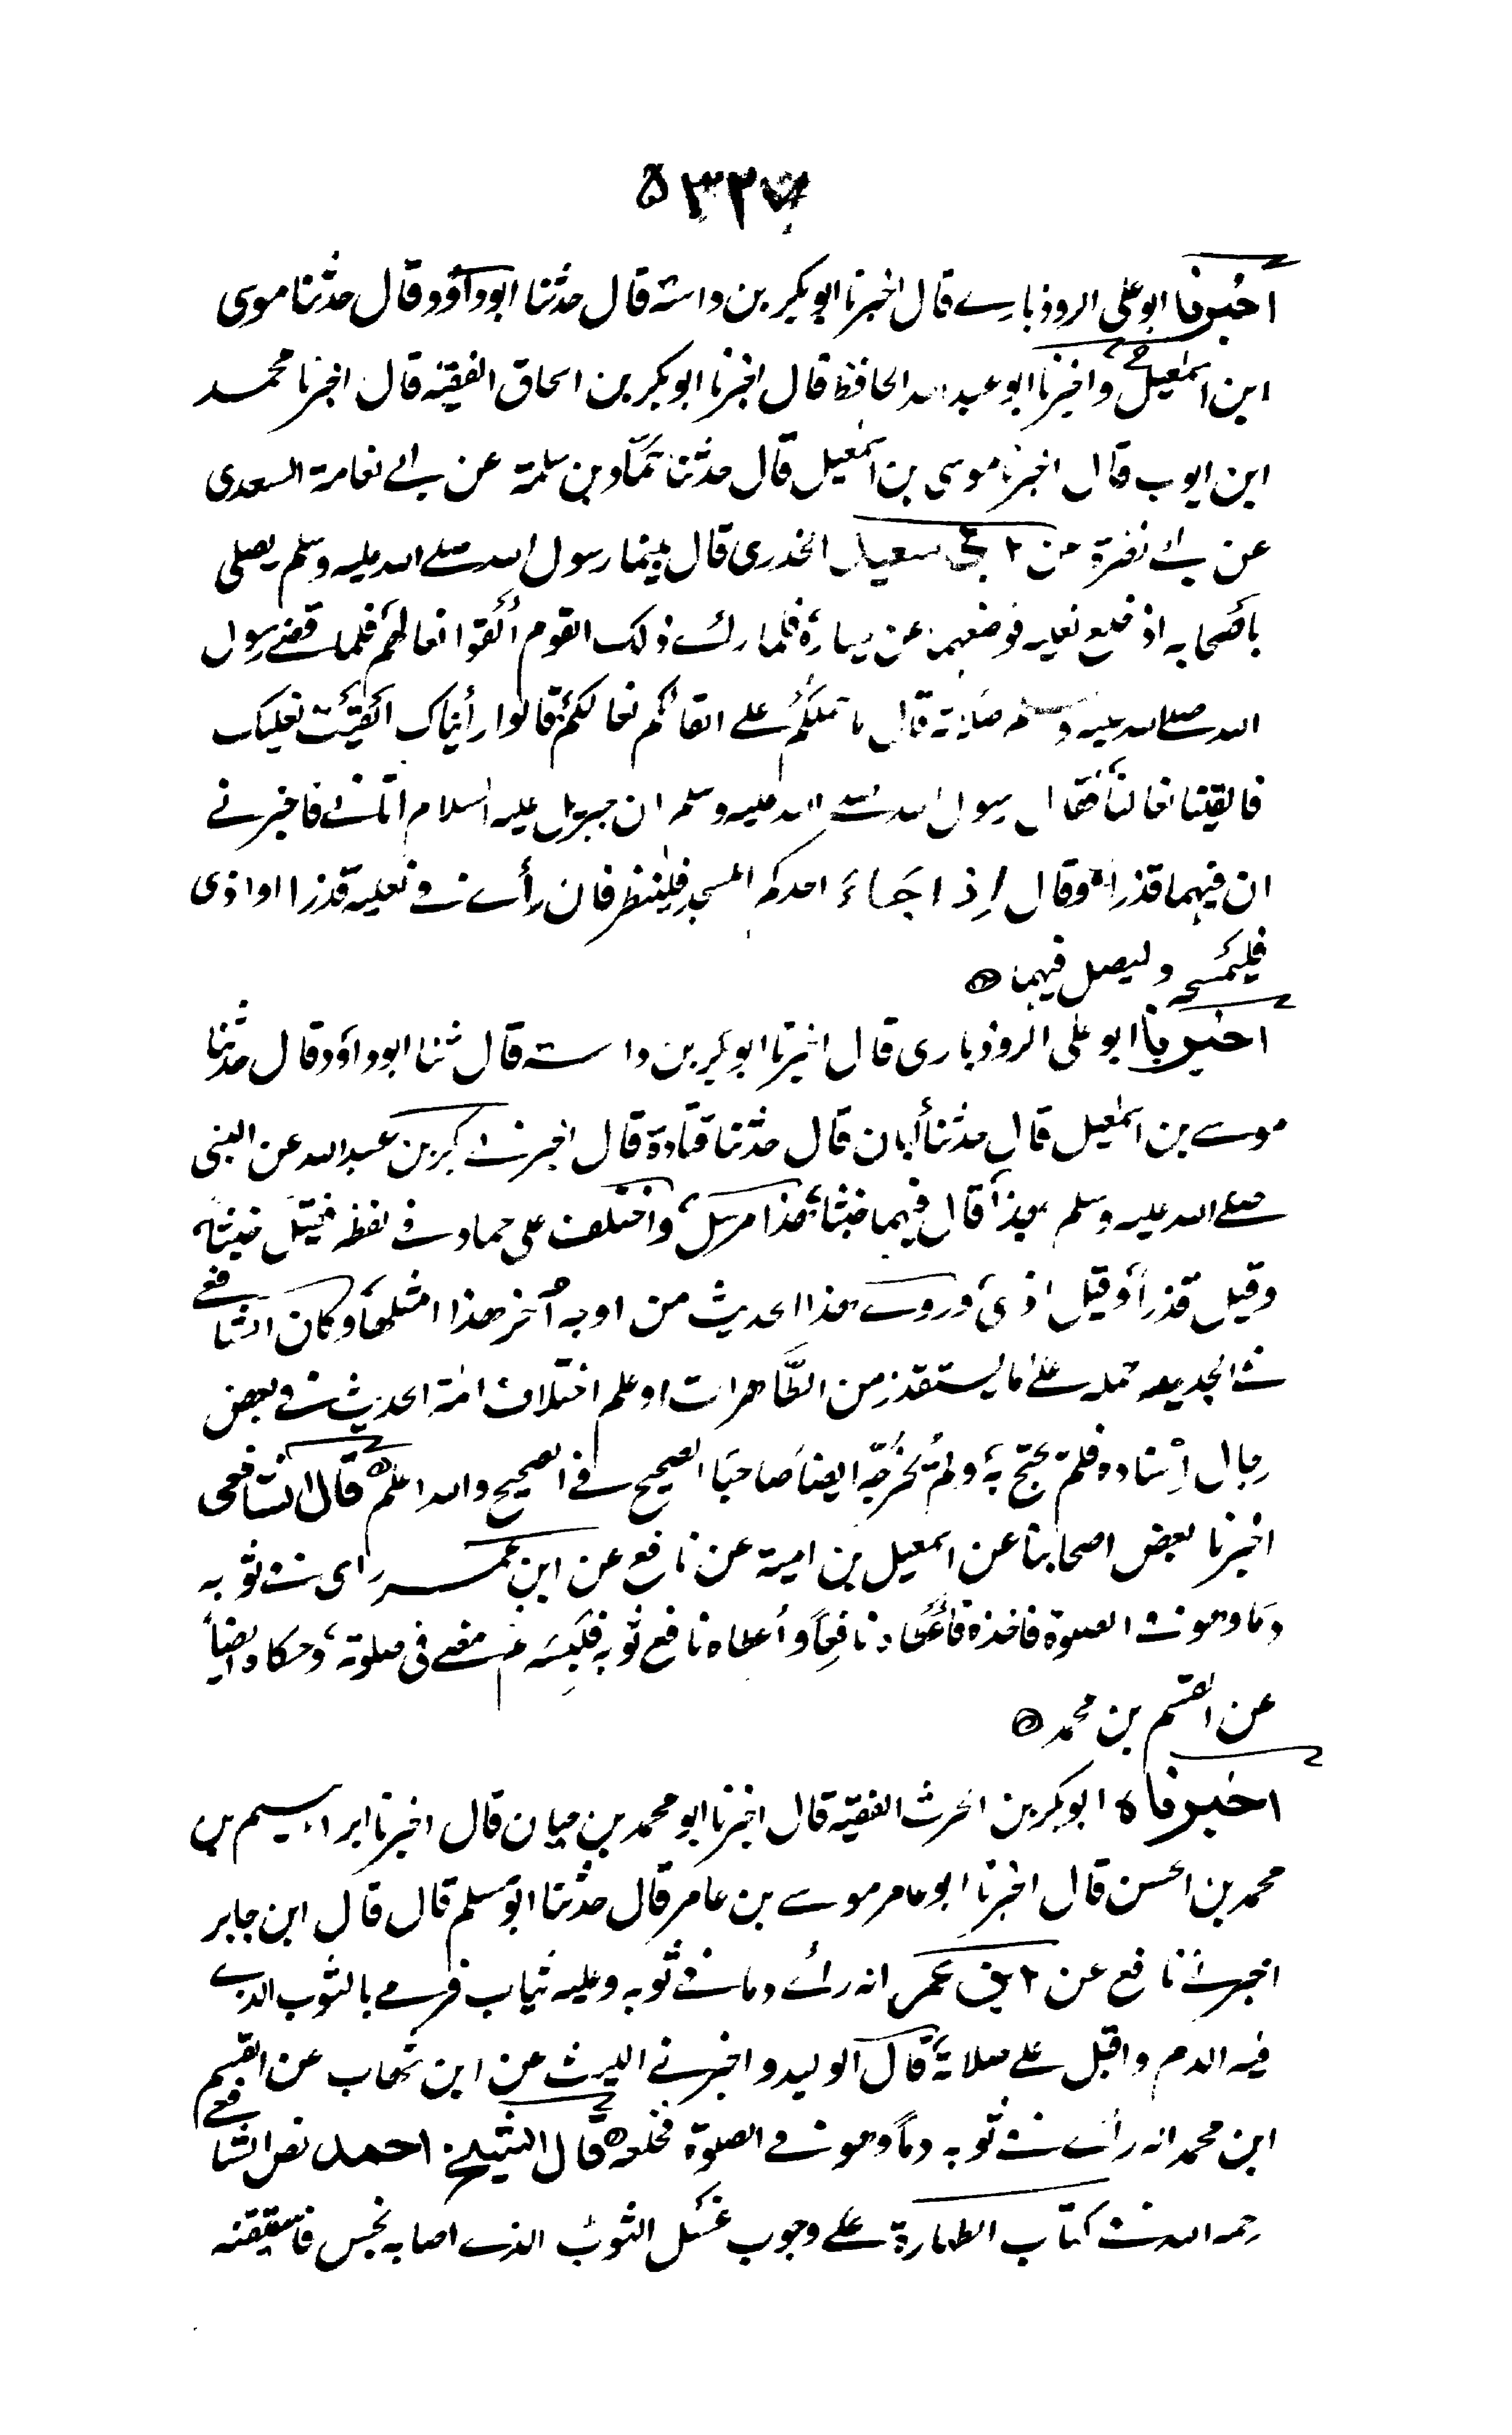 اخبرنا ابو على الروذبارے قال اخبرنا ابوبكر بن داسة قال حدثنا ابوداؤد وقال حدثنا موسى
ابن اسمٰعيل ح واخبرنا ابو عبد الله الحافظ قال اخبرنا ابوبكر بن اسحاق الفقيه قال اخبرنا محمد
ابن ايوب قال اخبرنا موسى بن اسمٰعيل قال حدثنا حمَّاد بن سلمة عن ابے نعامة السعدى
عن ابے نضرة عن ابى سعيد الخدرى قال بينما رسول الله صلے الله عليه وسلم يصلى
بأصحابه اذ خلع نعليه فوضعهما عن يساره فلما راے ذلك القوم أَلقَوا نعالهم فلما قضے رسول
الله صلے الله عليه وسلم صلاته قال ما حملكم علے القائكم نعالكم قالوا رأيناك القيت نعليك
فالقينا نعالنا فقال رسول الله صلے الله عليه وسلم ان جبريل عليه السلام اتانے فاخبرنے
ان فيهما قذرا وقال إذا جَاءَ احدكم المسجد فلينظر فان رأے فے نعليه قذرا او اذى
فليمسحه وليصل فيهما
اخبرنا ابو على الروذبارى قال اخبرنا ابوبكر بن داسة قال ثنا ابوداؤد قال حدثنا
موسے بن اسمٰعيل قال حدثنا أبان قال حدثنا قتادة قال اخبرنے بكر بن عبد الله عن النبى
صلے الله عليه وسلم بهذا قال فيهما خبثا هذا مرسل واختلف على حماد فے لفظه فقيل خبثا
وقيل قذراً وقيل اذىً وروے هذا الحديث من اوجه أخر هذا امثلها وكان الشافعے
فے الجديد حمله علے ما يستقذر من الطَّاهرات او علم اختلاف ائمة الحديث فے بعض
رجال إسناده فلم يحتج به ولم يُخرّجه ايضاً صاحبَا الصحيح فے الصحيح والله اعلم قال الشافعى
اخبرنا بعض اصحابنا عن اسمعيل بن امية عن نافع عن ابن عمر راى فے ثوبه
دما وهو فے الصلوة فاخذه فأعطاه نافعاً وأعطاه نافع ثوبه فلبسه ثم مضے فى صلوته وحكاه ايضاً
عن القسم بن محمد
اخبرناه ابوبكر بن الحرث الفقيه قال اخبرنا ابو محمد بن حيان قال اخبرنا ابراهيم بن
محمد بن الحسن قال اخبرنا ابو عامر موسے بن عامر قال حدثنا ابو مسلم قال قال ابن جابر
اخبرنے نافع عن ابن عمر انه رأے دما فے ثوبه وعليه ثياب فرمے بالثوب الذے
فيه الدم واقبل علے صلاته قال الوليد واخبرنے الليث عن ابن شهاب عن القسم
ابن محمد انه رأے فے ثوبه دماً وهو فے الصلوة فخلعه قال الشيخ احمد نص الشافعے
رحمه الله فے كتاب الطهارة علے وجوب غسل الثوب الذے اصابه نجس فاستيقنه